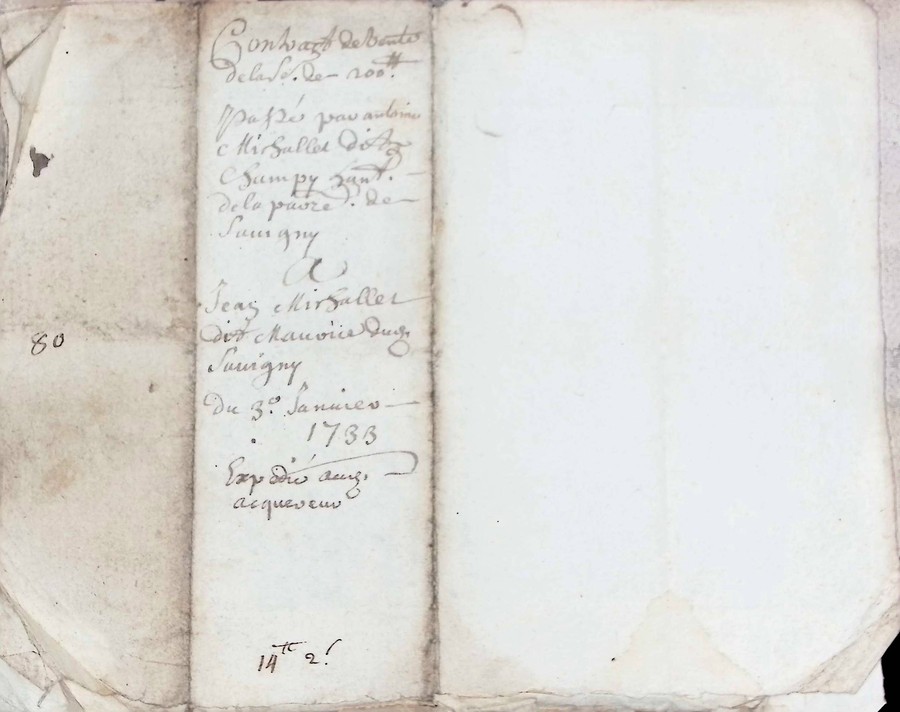 Contract de Vente
de la So. de 200tt.
Passé par antoine
Michallet dit
Champy hant.
de la parre. de
Sauigny
A
Jean Michallet
dit Maurice dud.
Sauigny
du 3e. Januier
1733
Expedié aud.
acquereur
80
14tt 2s